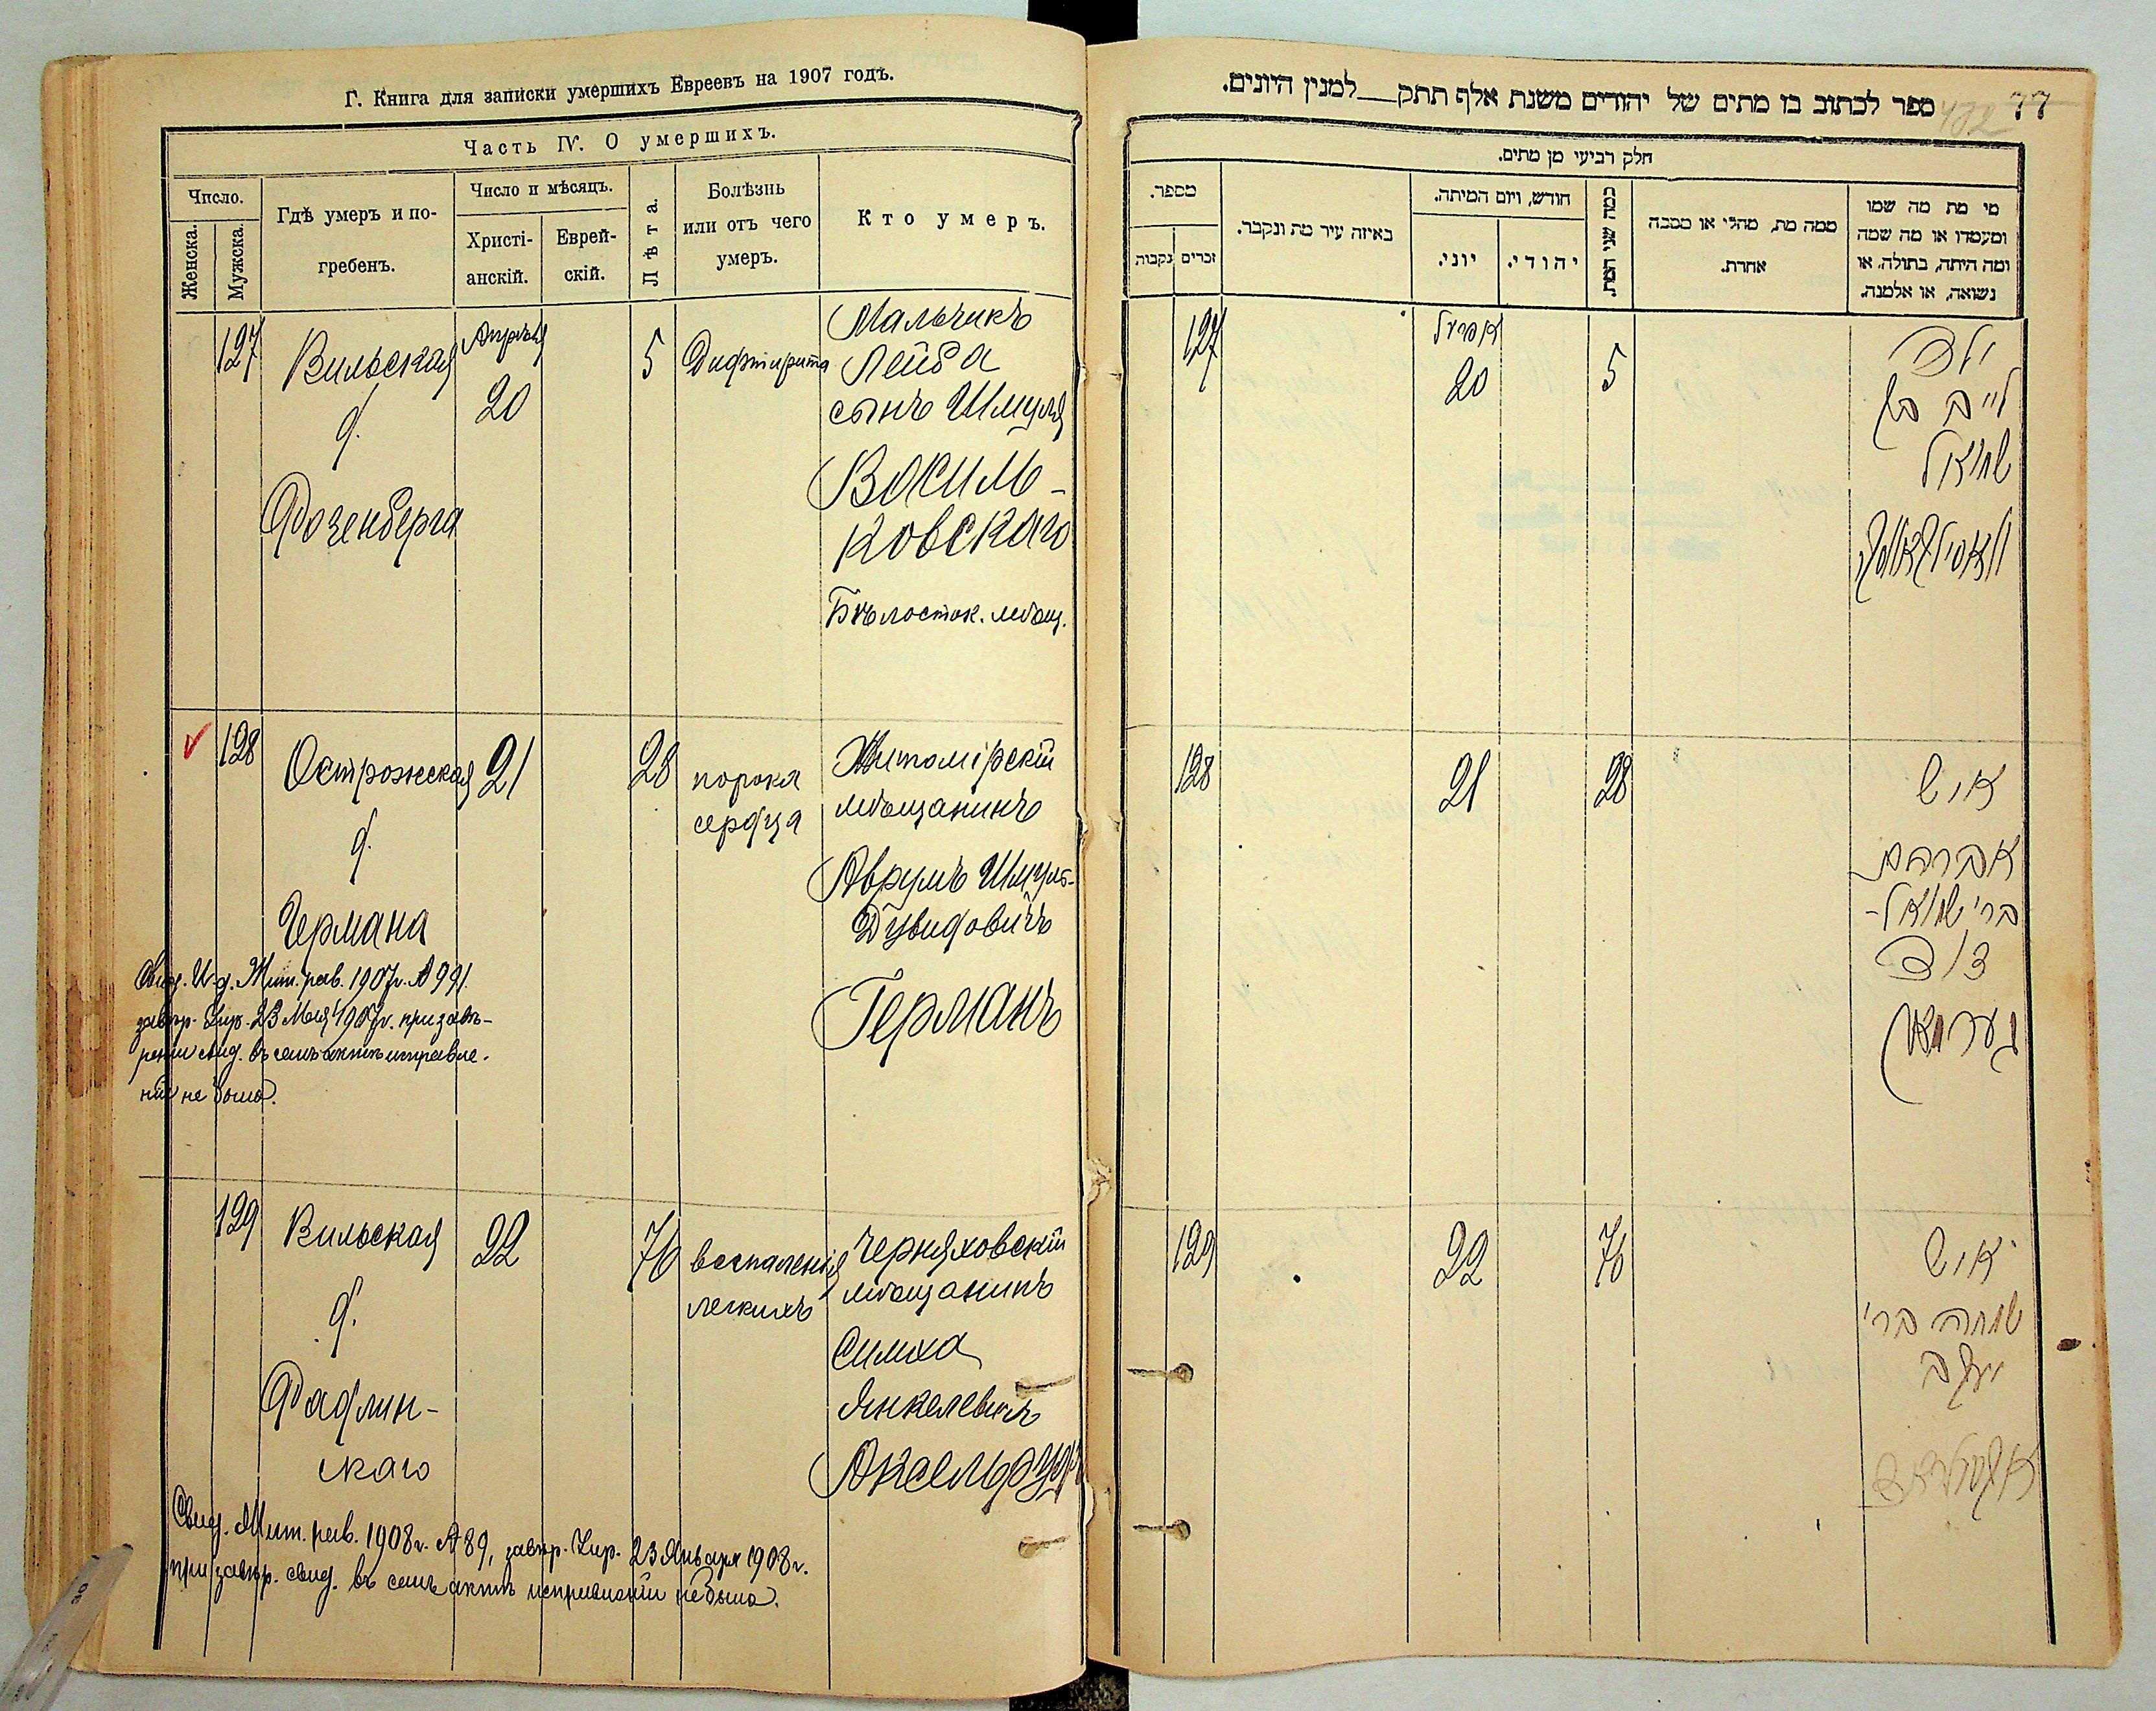 Г. Книга для записки умершихъ Евреевъ на 1907 годъ.
Часть IV. О умершихъ.
Число.
Женска.
Мужска.
Гдѣ умеръ и по-
гребенъ.
Число и мѣсяцъ.
Христі-
анскій.
Еврей-
скій.
Лѣта.
Болѣзнь
или отъ чего
умеръ.
Кто умеръ.
127
Вильская
д.
Розенберга
Апрѣля
20
5
Дифтерита
Мальчикъ
Лейба
сынъ Шмуля
Василь-
ковскаго
Бѣлосток. мѣщ.
128
Острожская
д.
Германа
21
28
порока
сердца
Житомірскій
мѣщанинъ
Аврумъ Шмуль-
Дувидовичъ
Германъ
Свид. Жит. рав. 1907г. № 991.
завѣр. Упр. 23 Мая 1907г. при завѣ-
реніи свид. въ семъ актѣ исправле-
ній не было.
129
Вильская
д.
Радлин-
скаго
22
76
воспаленія
легкихъ
Черняховскій
мѣщанинъ
Симха
Янкелевичъ
Аксельрудъ
Свид. Жит. рав. 1908г. № 89, завѣр. Упр. 23 Января 1908г.
при завѣр. свид. въ семъ актѣ исправленій не было.
77
ספר לכתוב בו מתים של יהודים משנת אלף תתק למנין היונים.
חלק רביעי מן מתים.
מספר.
זכרים
נקבות
באיזה עיר מת ונקבר.
חודש, ויום המיתה.
יוני.
יהודי.
כמה שני המת.
ממה מת, מחלי או מסבה
אחרת.
מי מת מה שמו
ומעמדו או מה שמה
ומה היתה, בתולה, או
נשואה, או אלמנה.
127
אפריל
20
5
ילד
לייב בן
שמואל
וואסילקאווסקי
128
21
28
איש
אברהם
ברי שמואל-
דוד
גערמאן
129
22
76
איש
שמחה ברי
יעקב
אקסלראד